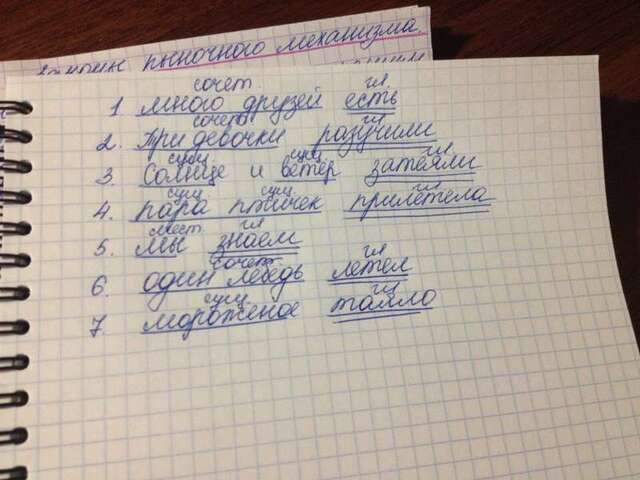 рыночного механизма
сочет гл.
1 много друзей есть
сочет гл
2. Три девочки разучили
сущ сущ гл
3. Солнце и ветер затеяли
сущ сущ. гл
4. пара птичек прилетела
мест. гл
5. мы знаем
сочет гл
6. один лебедь летел
сущ. гл
7. мороженое таяло